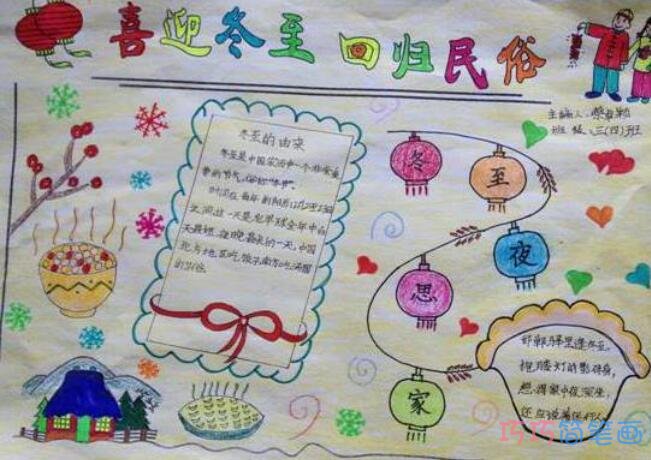 喜迎冬至 回归民俗
主编人:蔡
班级:三(四)班
冬至的由来
冬至是中国农历中一个非常重
要的节气,俗称"冬节",
时间在每年的阳历12月21至23日
之间,这一天是北半球全年中白
天最短、夜晚最长的一天,中国
北方地区吃饺子南方吃汤圆
的习俗。
冬
至
夜
思
家
邯郸驿里逢冬至,
抱膝灯前影伴身,
想得家中夜深坐,
还应说着远行人。
巧巧简笔画